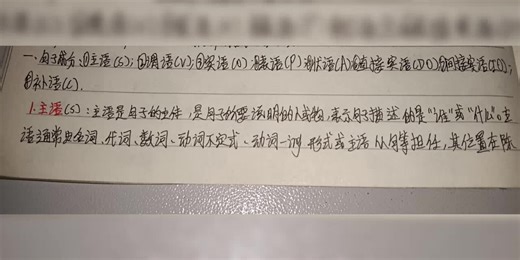 一、句子成分:①主语(S);②谓语(V);③宾语(O);④表语(P);⑤状语(A);⑥直接宾语(DO);⑦间接宾语(IO);
⑧补语(C).
1.主语(S):主语是句子的主体,是句子所要说明的人或物,表示句子描述的是“谁”或“什么”。主
语通常由名词、代词、数词、动词不定式、动词-ing形式或主语从句等担任,其位置在陈